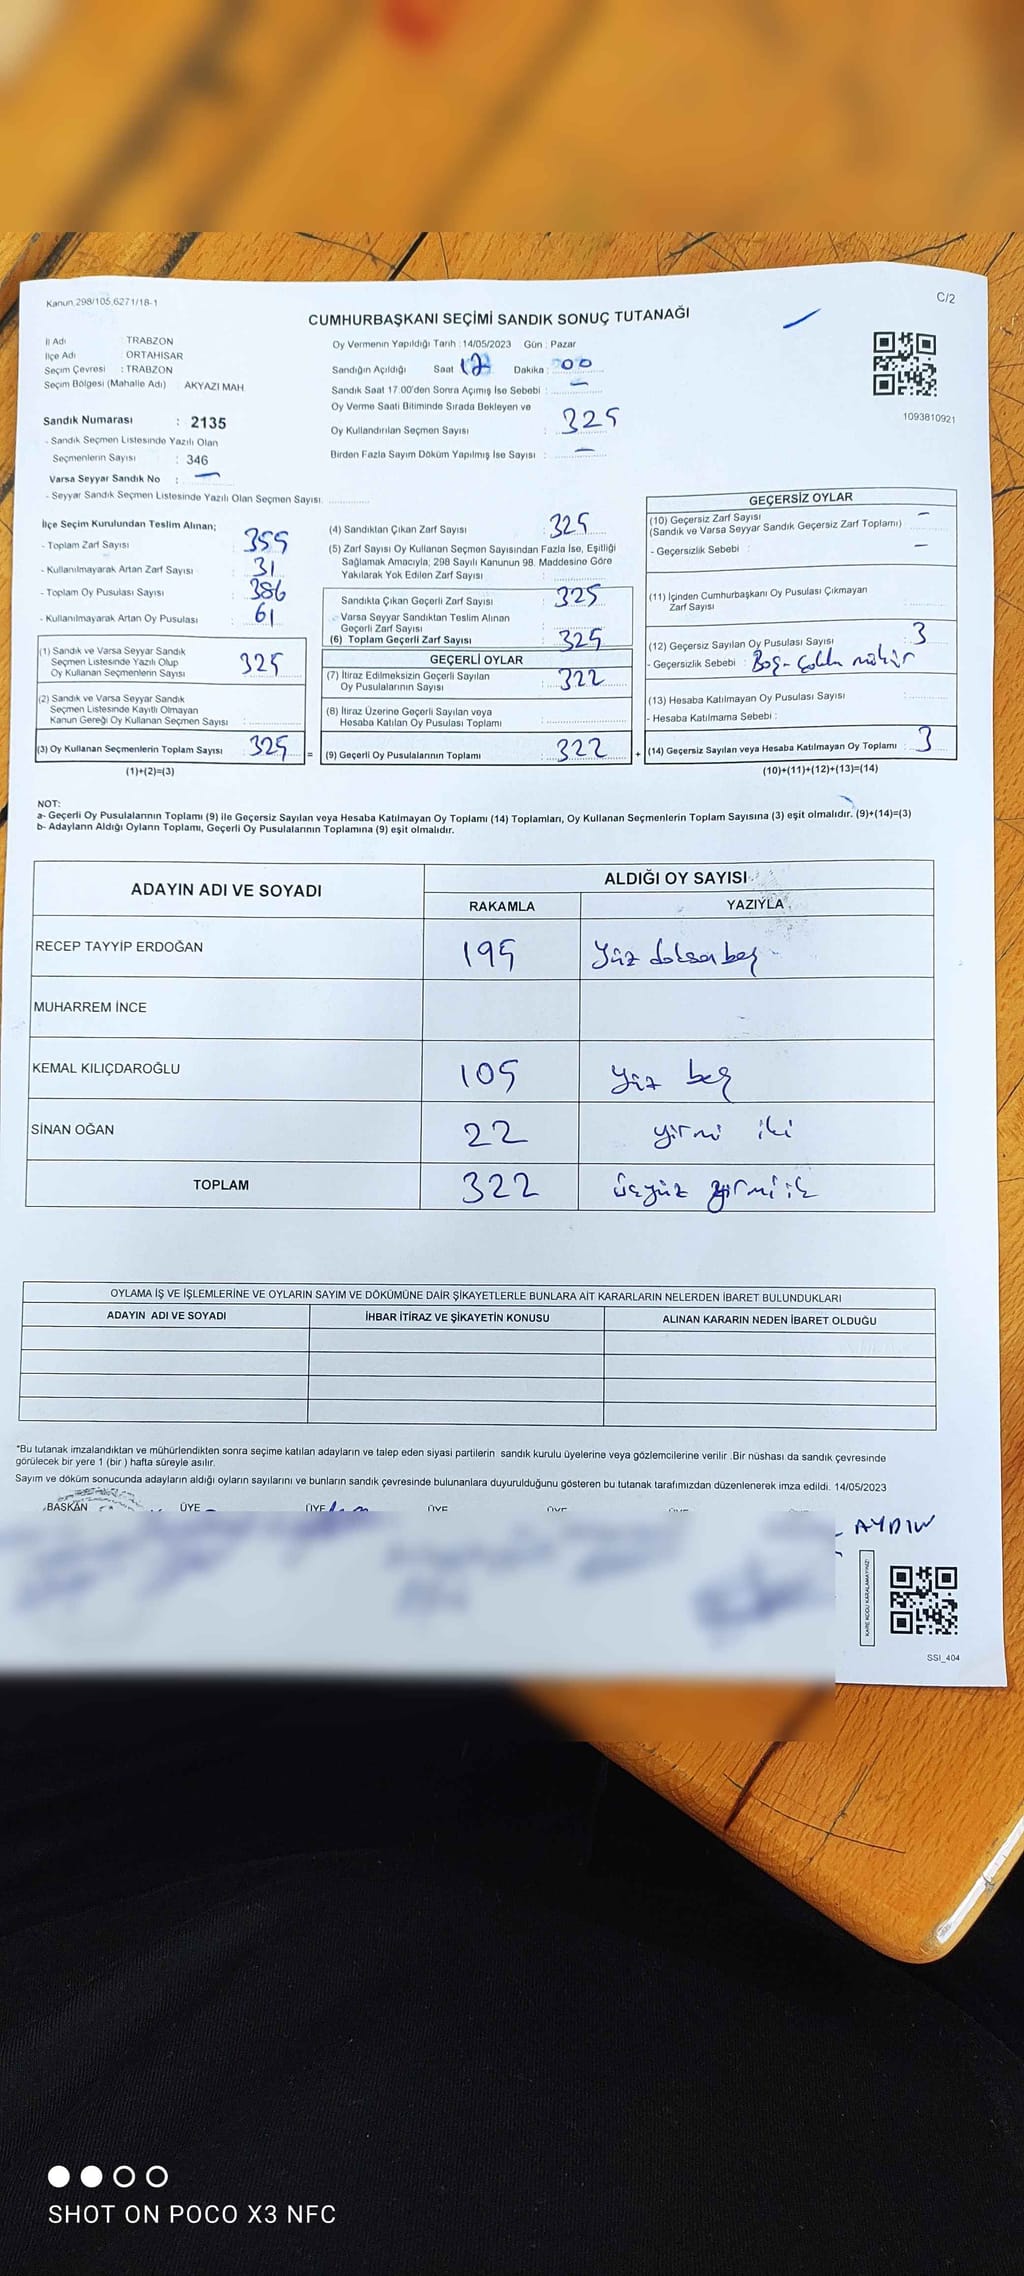 Kanun,298/105,6271/18-1
C/2
CUMHURBAŞKANI SEÇİMİ SANDIK SONUÇ TUTANAĞI
İl Adı : TRABZON
İlçe Adı : ORTAHİSAR
Seçim Çevresi : TRABZON
Seçim Bölgesi (Mahalle Adı) : AKYAZI MAH.
Sandık Numarası : 2135
- Sandık Seçmen Listesinde Yazılı Olan
Seçmenlerin Sayısı : 346
Varsa Seyyar Sandık No : —
- Seyyar Sandık Seçmen Listesinde Yazılı Olan Seçmen Sayısı:
Oy Vermenin Yapıldığı Tarih : 14/05/2023 Gün : Pazar
Sandığın Açıldığı Saat 17 Dakika : 00
Sandık Saat 17.00'den Sonra Açımış İse Sebebi : —
Oy Verme Saati Bitiminde Sırada Bekleyen ve
Oy Kullandırılan Seçmen Sayısı : 325
Birden Fazla Sayım Döküm Yapılmış İse Sayısı : —
1093810921
İlçe Seçim Kurulundan Teslim Alınan;
- Toplam Zarf Sayısı : 355
- Kullanılmayarak Artan Zarf Sayısı : 31
- Toplam Oy Pusulası Sayısı : 386
- Kullanılmayarak Artan Oy Pusulası : 61
(1) Sandık ve Varsa Seyyar Sandık
Seçmen Listesinde Yazılı Olup
Oy Kullanan Seçmenlerin Sayısı 325
(2) Sandık ve Varsa Seyyar Sandık
Seçmen Listesinde Kayıtlı Olmayan
Kanun Gereği Oy Kullanan Seçmen Sayısı :
(3) Oy Kullanan Seçmenlerin Toplam Sayısı : 325 =
(1)+(2)=(3)
(4) Sandıktan Çıkan Zarf Sayısı : 325
(5) Zarf Sayısı Oy Kullanan Seçmen Sayısından Fazla İse, Eşitliği
Sağlamak Amacıyla; 298 Sayılı Kanunun 98. Maddesine Göre
Yakılarak Yok Edilen Zarf Sayısı :
Sandıkta Çıkan Geçerli Zarf Sayısı : 325
Varsa Seyyar Sandıktan Teslim Alınan
Geçerli Zarf Sayısı :
(6) Toplam Geçerli Zarf Sayısı : 325
GEÇERLİ OYLAR
(7) İtiraz Edilmeksizin Geçerli Sayılan
Oy Pusulalarının Sayısı : 322
(8) İtiraz Üzerine Geçerli Sayılan veya
Hesaba Katılan Oy Pusulası Toplamı :
(9) Geçerli Oy Pusulalarının Toplamı : 322 +
GEÇERSİZ OYLAR
(10) Geçersiz Zarf Sayısı : —
(Sandık ve Varsa Seyyar Sandık Geçersiz Zarf Toplamı)
- Geçersizlik Sebebi : —
(11) İçinden Cumhurbaşkanı Oy Pusulası Çıkmayan
Zarf Sayısı
(12) Geçersiz Sayılan Oy Pusulası Sayısı : 3
- Geçersizlik Sebebi : Boş-
(13) Hesaba Katılmayan Oy Pusulası Sayısı
- Hesaba Katılmama Sebebi :
(14) Geçersiz Sayılan veya Hesaba Katılmayan Oy Toplamı : 3
(10)+(11)+(12)+(13)=(14)
NOT:
a- Geçerli Oy Pusulalarının Toplamı (9) ile Geçersiz Sayılan veya Hesaba Katılmayan Oy Toplamı (14) Toplamları, Oy Kullanan Seçmenlerin Toplam Sayısına (3) eşit olmalıdır. (9)+(14)=(3)
b- Adayların Aldığı Oyların Toplamı, Geçerli Oy Pusulalarının Toplamına (9) eşit olmalıdır.
ADAYIN ADI VE SOYADI
ALDIĞI OY SAYISI
RAKAMLA YAZIYLA
RECEP TAYYİP ERDOĞAN 195 yüz doksanbeş
MUHARREM İNCE
KEMAL KILIÇDAROĞLU 105 yüz beş
SİNAN OĞAN 22 yirmi iki
TOPLAM 322 üçyüz yirmi iki
OYLAMA İŞ VE İŞLEMLERİNE VE OYLARIN SAYIM VE DÖKÜMÜNE DAİR ŞİKAYETLERLE BUNLARA AİT KARARLARIN NELERDEN İBARET BULUNDUKLARI
ADAYIN ADI VE SOYADI İHBAR İTİRAZ VE ŞİKAYETİN KONUSU ALINAN KARARIN NEDEN İBARET OLDUĞU
*Bu tutanak imzalandıktan ve mühürlendikten sonra seçime katılan adayların ve talep eden siyasi partilerin sandık kurulu üyelerine veya gözlemcilerine verilir .Bir nüshası da sandık çevresinde
görülecek bir yere 1 (bir ) hafta süreyle asılır.
Sayım ve döküm sonucunda adayların aldığı oyların sayılarını ve bunların sandık çevresinde bulunanlara duyurulduğunu gösteren bu tutanak tarafımızdan düzenlenerek imza edildi. 14/05/2023
BAŞKAN ÜYE ÜYE ÜYE ÜYE
AYDIN
KARE KODU KARALAMAYINIZ!
SSI_404
SHOT ON POCO X3 NFC